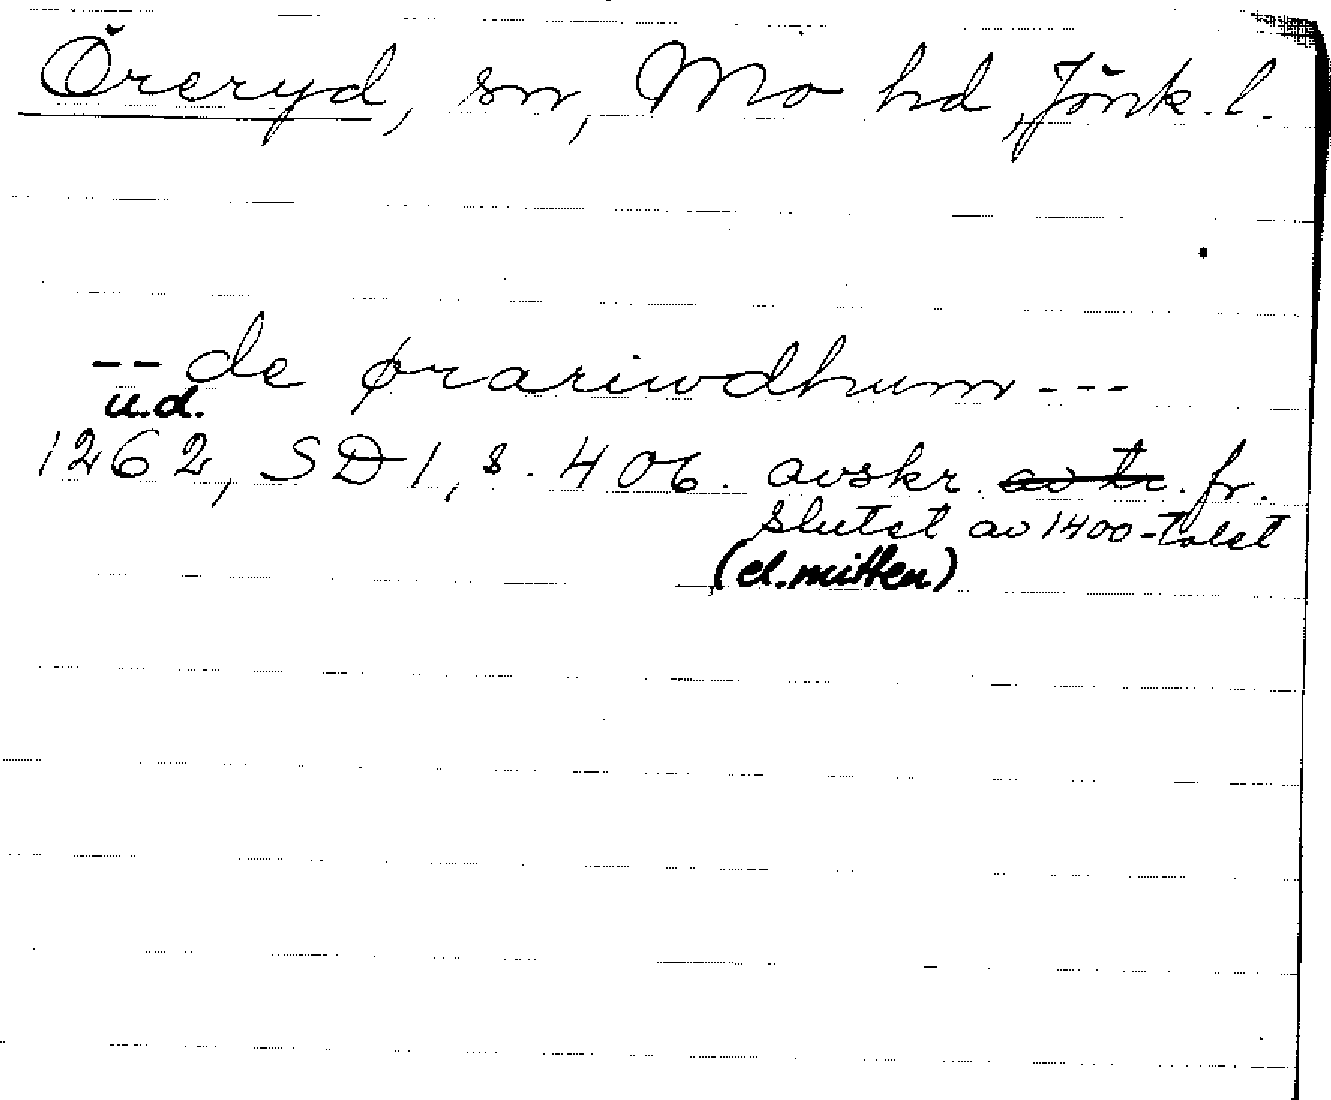 Öreryd, sn, Mo hd, Jönk. l.
-- de ørariwdhum ---
u.d.
1262, SD 1, s. 406. avskr. av tr. fr.
slutet av 1400-talet
(el. mitten)